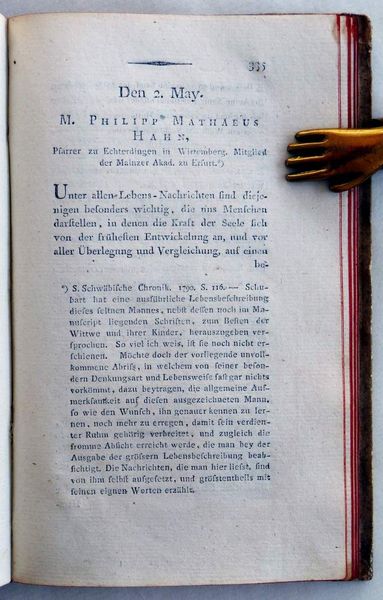 335
Den 2. May.
M. PHILIPP MATHAEUS
HAHN,
Pfarrer zu Echterdingen in Wirtemberg. Mitglied
der Mainzer Akad. zu Erfurt.*)
Unter allen Lebens-Nachrichten ſind dieje-
nigen beſonders wichtig, die uns Menſchen
darſtellen, in denen die Kraft der Seele ſich
von der früheſten Entwickelung an, und vor
aller Überlegung und Vergleichung, auf einen
be-
*) S. Schwäbiſche Chronik. 1790. S. 116.— Schu-
bart hat eine ausführliche Lebensbeſchreibung
dieſes ſeltnen Mannes, nebſt deſſen noch im Ma-
nuſcript liegenden Schriften, zum Beſten der
Wittwe und ihrer Kinder, herauszugeben ver-
ſprochen. So viel ich weis, iſt ſie noch nicht er-
ſchienen. Möchte doch der vorliegende unvoll-
kommene Abriſs, in welchem von ſeiner beſon-
dern Denkungsart und Lebensweiſe faſt gar nichts
vorkömmt, dazu beytragen, die allgemeine Auf-
merkſamkeit auf dieſen ausgezeichneten Mann,
ſo wie den Wunſch, ihn genauer kennen zu ler-
nen, noch mehr zu erregen, damit ſein verdien-
ter Ruhm gehörig verbreitet, und zugleich die
fromme Abſicht erreicht werde, die man bey der
Ausgabe der gröſsern Lebensbeſchreibung beab-
ſichtigt. Die Nachrichten, die man hier lieſst, ſind
von ihm ſelbſt aufgeſetzt, und gröſstentheils mit
ſeinen eignen Worten erzählt.